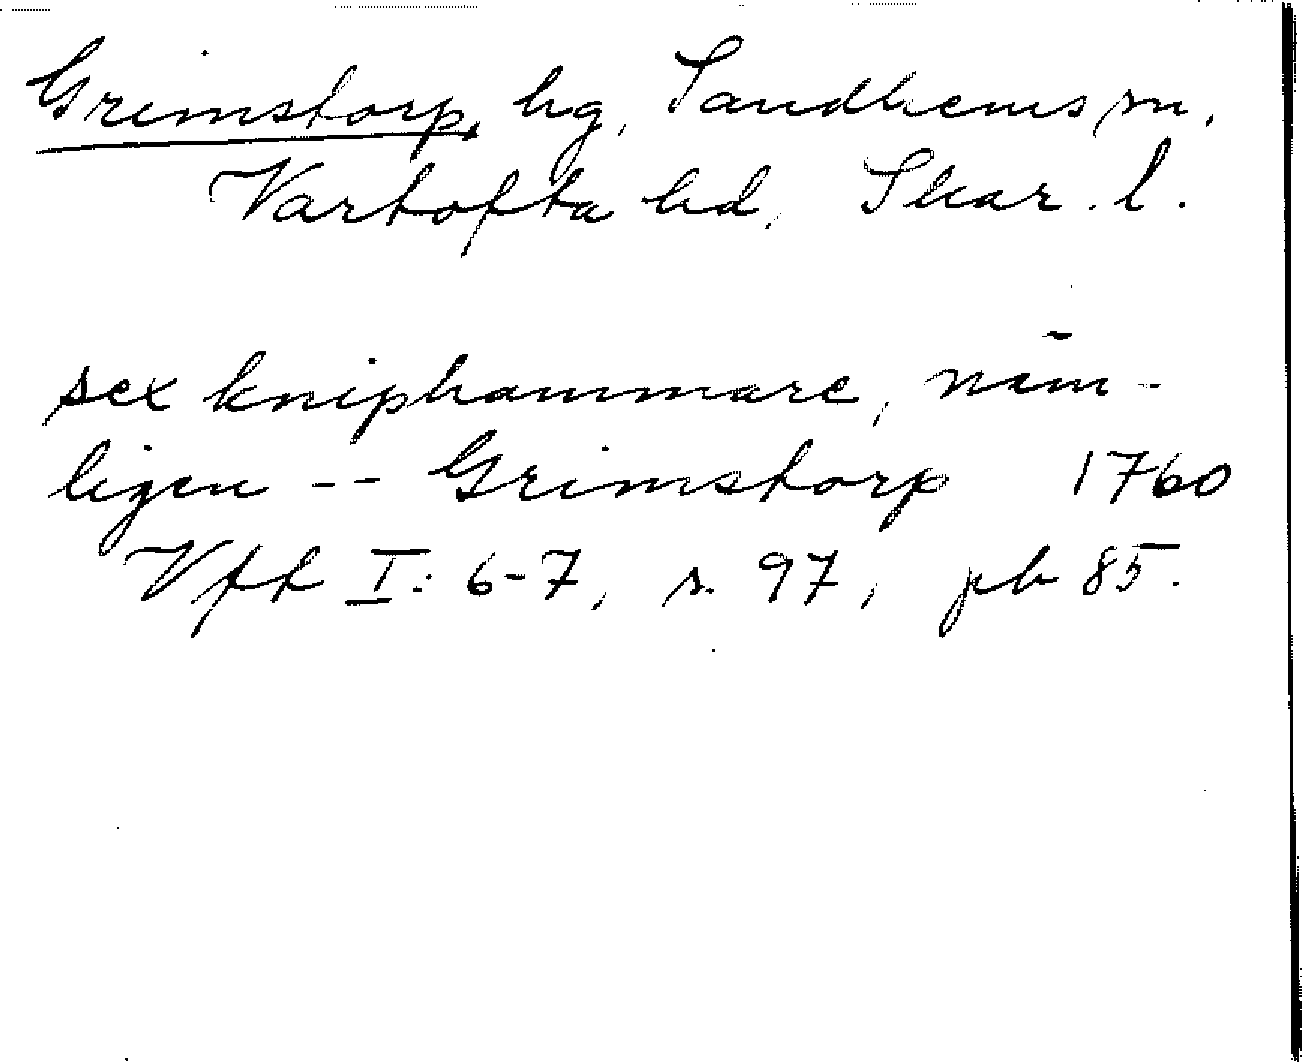 Grimstorp, hg, Sandhems sn.
Vartofta hd, Skar. l.
sex kniphammare, näm-
ligen -- Grimstorp 1760
Vfft I: 6-7, s. 97, pb 85.